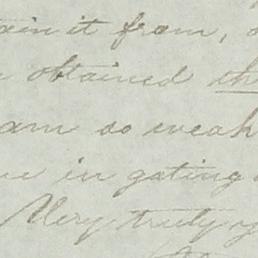 ain it from,
obtained th
am so weak
in gating
Very truly y